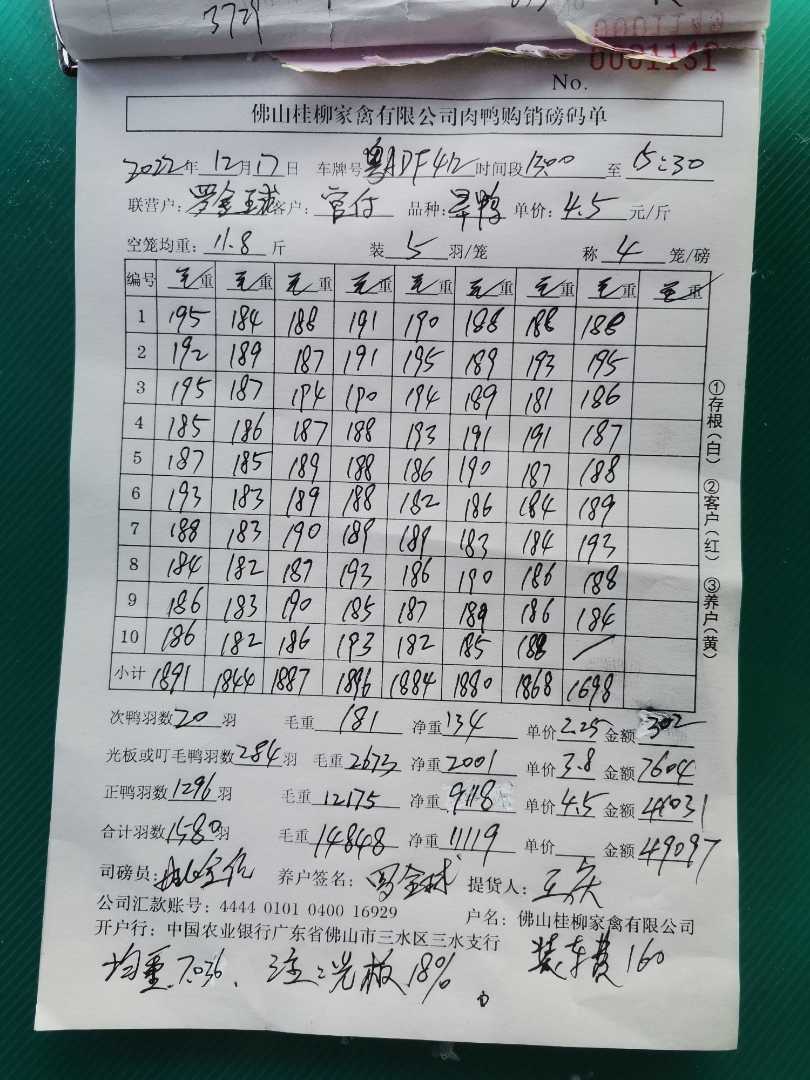 3729
0001131
No.
佛山桂柳家禽有限公司肉鸭购销磅码单
2022年12月17日 车牌号粤ADF412时间段1300至15:30
联营户:罗金球 客户:官付 品种:旱鸭 单价:4.5元/斤
空笼均重:11.8斤 装5羽/笼 称4笼/磅
编号 毛重 毛重 毛重 毛重 毛重 毛重 毛重 毛重 毛重
1 195 184 188 191 190 188 188 188
2 192 189 187 191 195 189 193 195
3 195 187 194 190 194 189 181 186
4 185 186 187 188 193 191 191 187
5 187 185 189 188 186 190 187 188
6 193 183 189 188 182 186 184 189
7 188 183 190 189 189 183 184 193
8 184 182 187 193 186 190 186 188
9 186 183 190 185 187 189 186 184
10 186 182 186 193 182 185 188 /
小计 1891 1844 1887 1896 1884 1880 1868 1698
①存根(白) ②客户(红) ③养户(黄)
次鸭羽数20羽 毛重181 净重134 单价2.25 金额302
光板或叮毛鸭羽数284羽 毛重2673 净重2001 单价3.8 金额7604
正鸭羽数1296羽 毛重12175 净重9118 单价4.5 金额41031
合计羽数1580羽 毛重14848 净重11119 单价 金额49097
司磅员: 养户签名:罗金球 提货人:王庆
公司汇款账号:4444 0101 0400 16929 户名:佛山桂柳家禽有限公司
开户行:中国农业银行广东省佛山市三水区三水支行
均重7.036、注:光板18% 装车费160